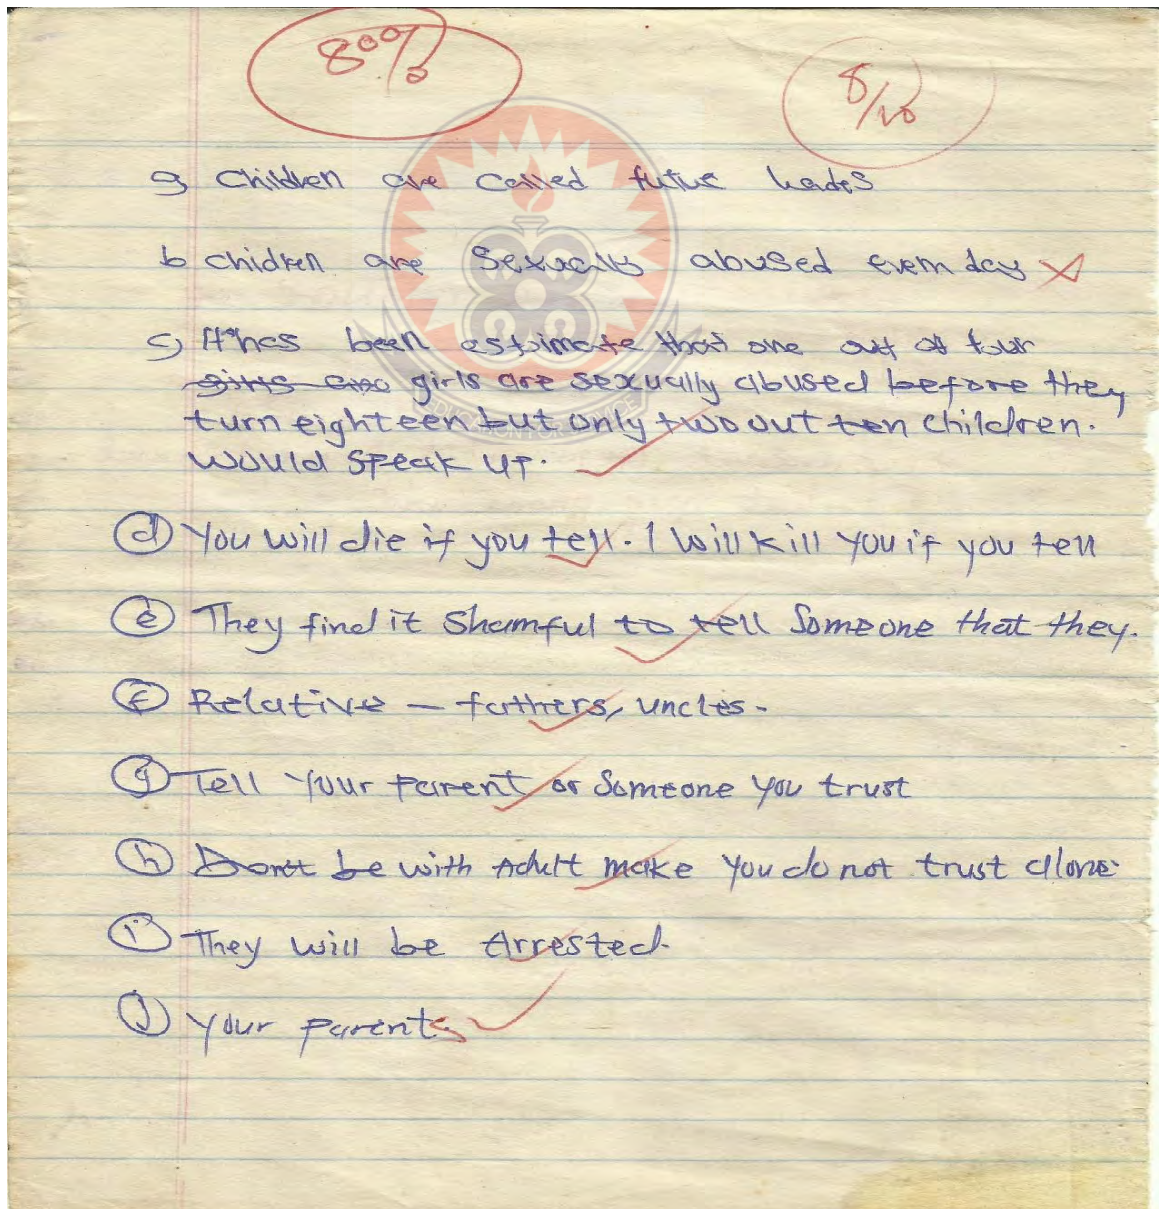 80%
8/10
a Children are called future leaders
b children are sexually abused every day
c) It has been estimate that one out of four
girls are girls are sexually abused before they
turn eighteen but only two out ten children.
would speak up.
(d) You will die if you tell. I will kill you if you tell
(e) They find it shamful to tell someone that they.
(f) Relative – fathers, uncles.
(g) Tell your parent or someone you trust
(h) Don't be with Adult make you do not trust alone.
(i) They will be Arrested.
(j) your parents